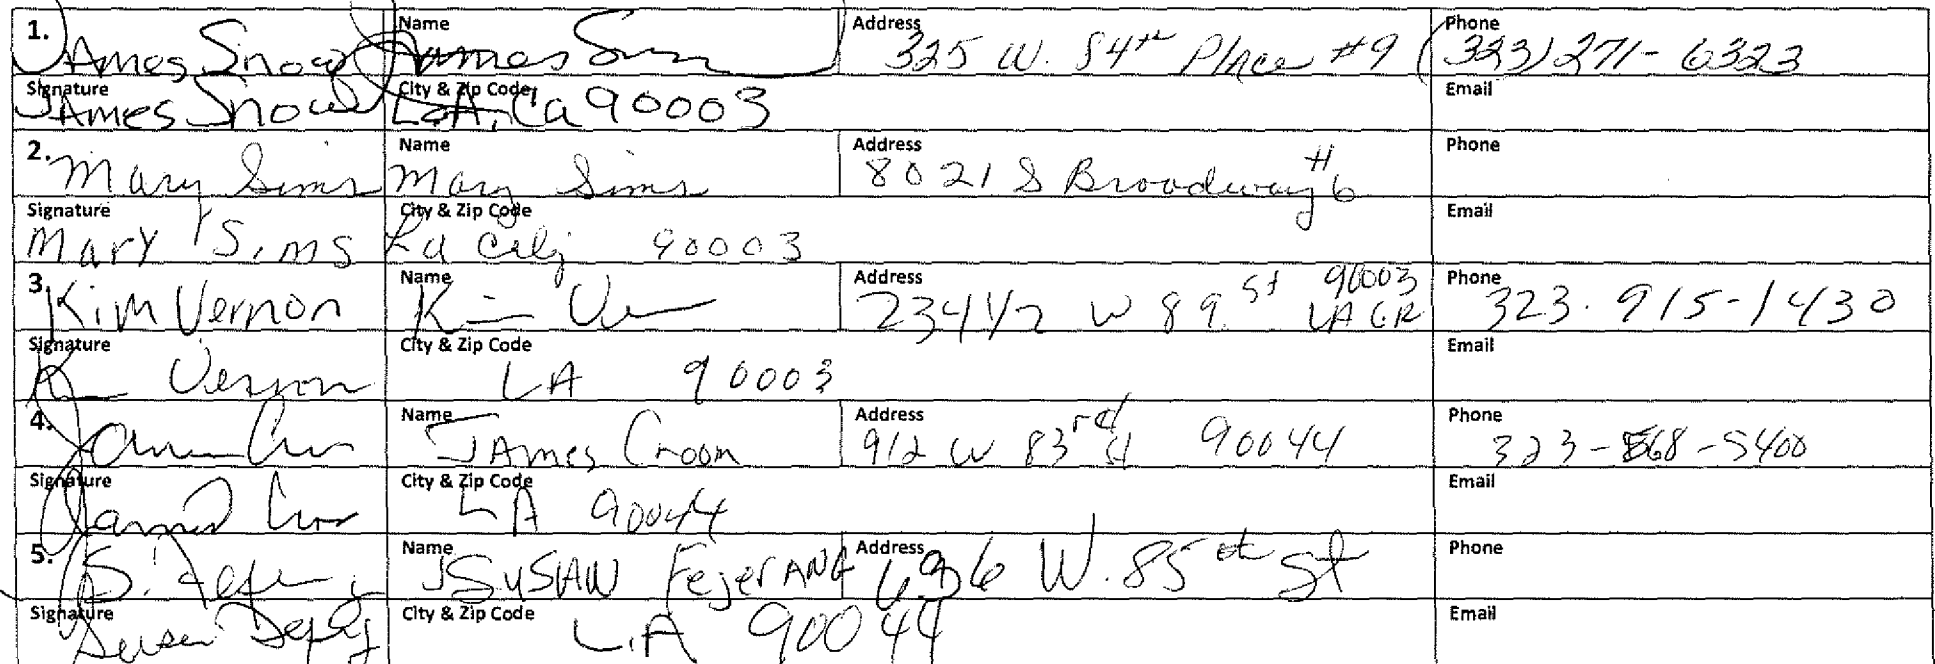 1. James Snow Name James Snow Address 325 W. 84th Place #9 Phone (323) 271-6323
Signature James Snow City & Zip Code L.A, Ca 90003 Email
2. Mary Sims Name Mary Sims Address 8021 S Broadway #6 Phone
Signature Mary Sims City & Zip Code 90003 Email
3. Kim Vernon Name Address 234 1/2 W 89 St 90003 Phone 323.915-1430
Signature Vernon City & Zip Code LA 90003 Email
4. Name James Croom Address 912 W 83rd St 90044 Phone 323-568-5400
Signature City & Zip Code LA 90044 Email
5. Name SUSAN Address W. 85th St Phone
Signature City & Zip Code L.A 90044 Email